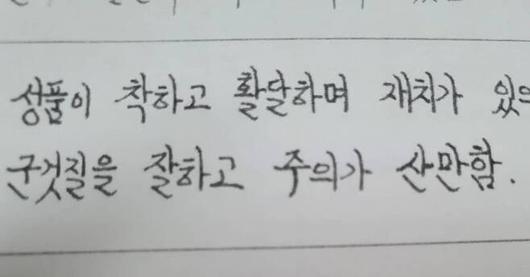 성품이 착하고 활달하며 재치가
군것질을 잘하고 주의가 산만함.